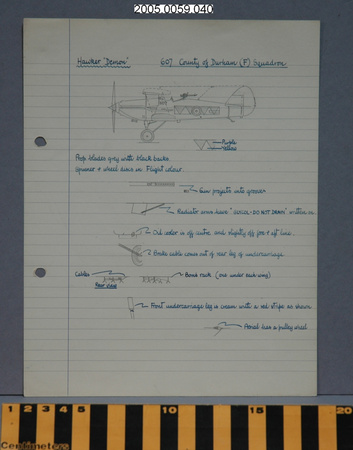 2005.0059.040
Hawker 'Demon' 607 County of Durham (F) Squadron
Purple
Yellow
Prop blades grey with black backs.
Spinner + wheel discs in Flight colour.
Gun projects into groove
Radiator arms have "DO NOT DRAIN" written on
Oil cooler is off centre and slightly off fore + aft line.
Brake cable comes out of rear leg of undercarriage.
Cables
Rear view
Bomb rack (one under each wing)
Front undercarriage leg is cream with a red stripe as shown
Aerial has a pulley wheel
1 2 3 4 5 10 15 20
Centimeters